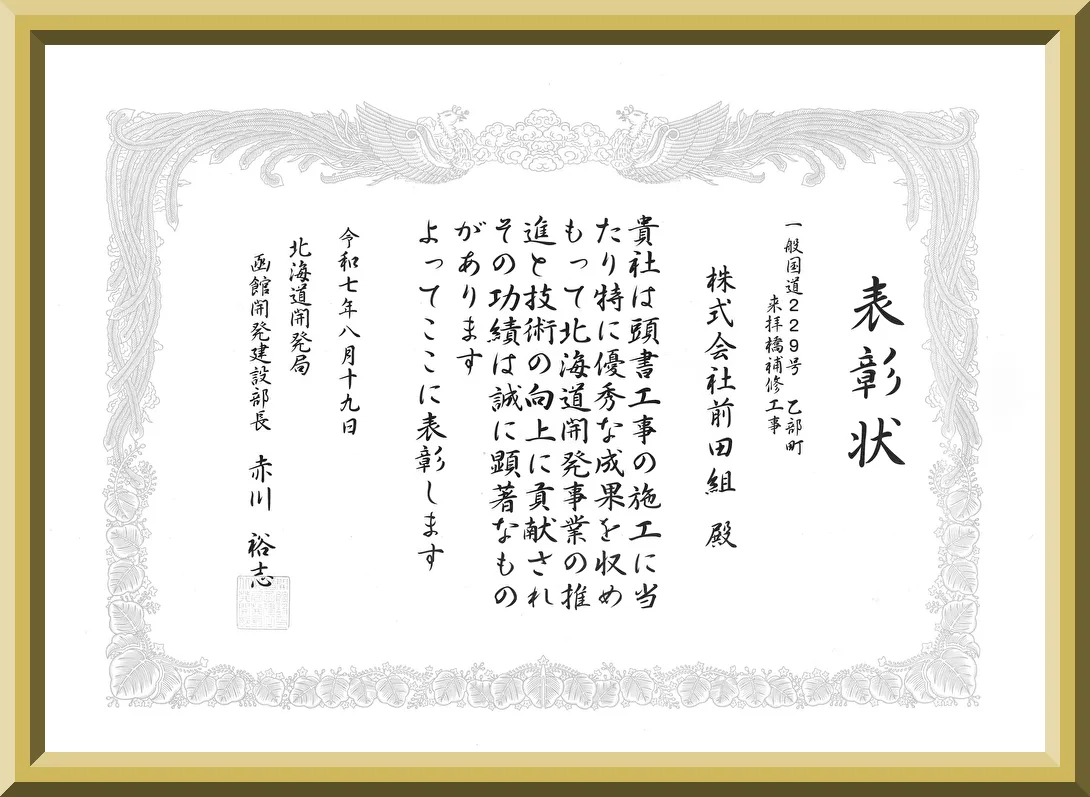 表彰状
一般国道229号 乙部町
来拝橋補修工事
株式会社前田組 殿
貴社は頭書工事の施工に当
たり特に優秀な成果を収め
もって北海道開発事業の推
進と技術の向上に貢献され
その功績は誠に顕著なもの
があります
よってここに表彰します
令和七年八月十九日
北海道開発局
函館開発建設部長 赤川 裕志